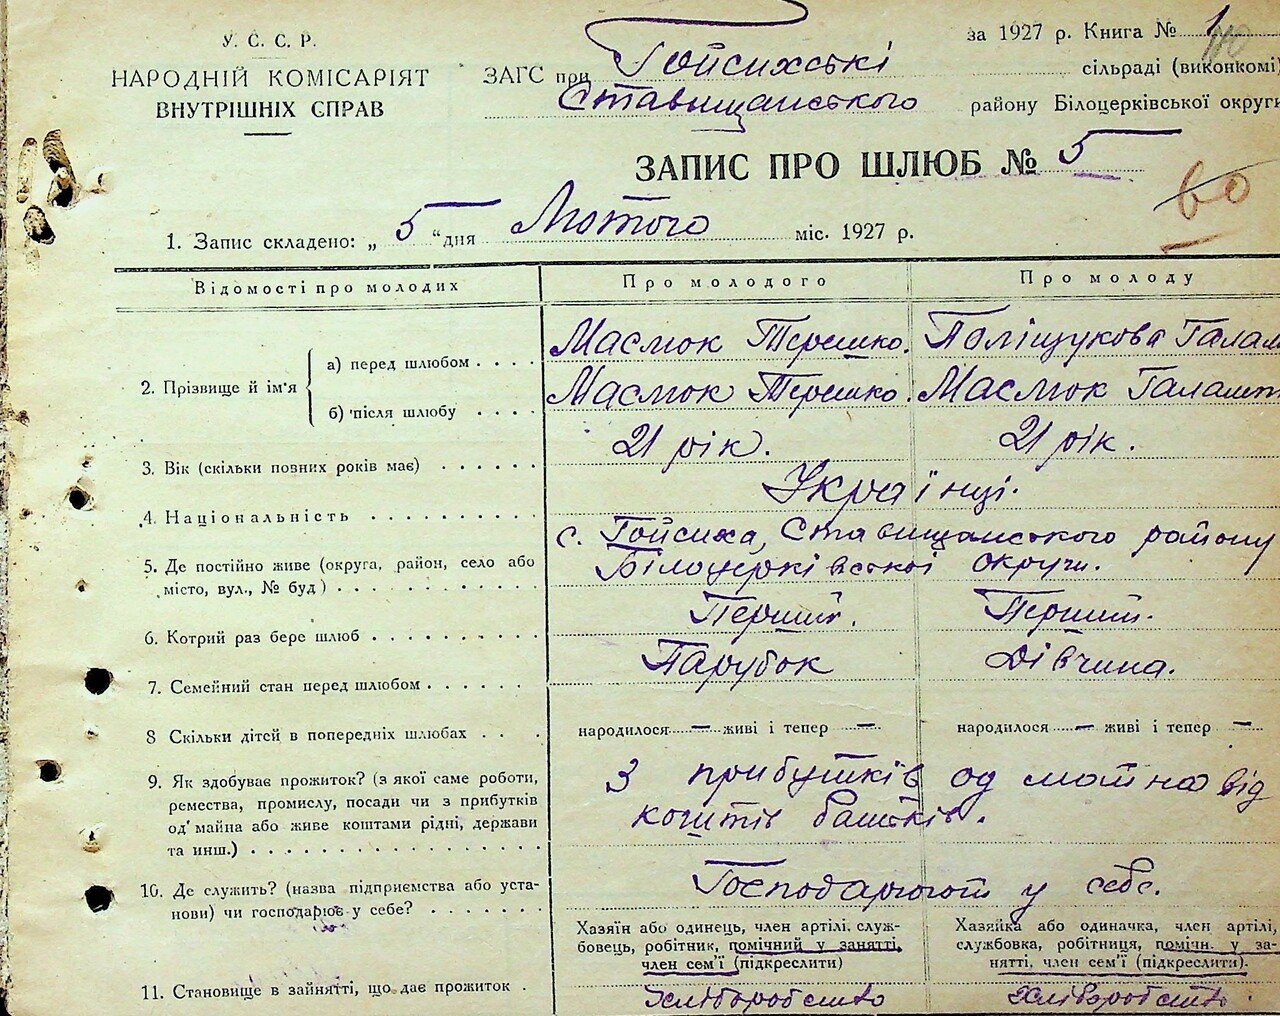 У. С. С. Р.
НАРОДНІЙ КОМІСАРІЯТ
ВНУТРІШНІХ СПРАВ
за 1927 р. Книга № 1
ЗАГС при Гойсихській сільраді (виконкомі)
Ставищанського району Білоцерківської округи
ЗАПИС ПРО ШЛЮБ № 5
60
1. Запис складено: „ 5 “ дня Лютого міс. 1927 р.
Відомості про молодих Про молодого Про молоду
2. Прізвище й ім'я
а) перед шлюбом . . . . Масмок Терешко. Поліщукова Галаш
б) після шлюбу . . . . Масмок Терешко. Масмок Галашт
3. Вік (скільки повних років має) . . . . . . 21 рік. 21 рік.
4. Національність . . . . . . . . . . Українці.
5. Де постійно живе (округа, район, село або місто, вул., № буд) . . . . . . . . . . с. Гойсиха, Ставищанського району
Білоцерківської округи.
6. Котрий раз бере шлюб . . . . . . . . . Перший. Перший.
7. Семейний стан перед шлюбом . . . . . . Парубок Дівчина.
8 Скільки дітей в попередніх шлюбах . . . народилося — живі і тепер — народилося — живі і тепер —
9. Як здобуває прожиток? (з якої саме роботи,
ремества, промислу, посади чи з прибутків
од' майна або живе коштами рідні, держави
та инш.) . . . . . . . . . . . . . . .
З прибутків од майна від
коштів батьків.
10. Де служить? (назва підприємства або уста-
нови) чи господарює у себе? . . . . . . .
Господарюють у себе.
Хазяїн або одинець, член артілі, служ-
бовець, робітник, помічний у занятті,
член сем'ї (підкреслити)
Хазяйка або одиначка, член артілі,
службовка, робітниця, помічн. у за-
нятті, член сем'ї (підкреслити).
11. Становище в зайнятті, що дає прожиток . Хліборобство Хліборобство.